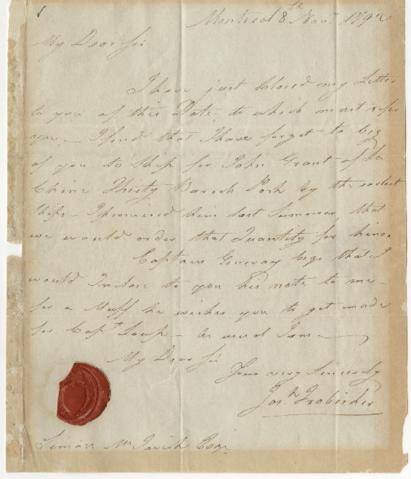 Montreal 8th Novr 1792
My Dear Sir
I have just closed my Letter
to you of this Date, to which I must refer
you. - I find that I have forgot to beg
of you to Ship for John Grant of La
Chine Thirty Barrels Pork by the earliest
Ships - I promised him last Summer, that
we would order that Quantity for him.
Captain begs that I
would Inclose to you his note to me
for a Muff he wishes you to get made
for Capt. - As usual I am
My Dear Sir
Yours very Sincerely
Jos. Frobisher
Simon McTavish Esqr